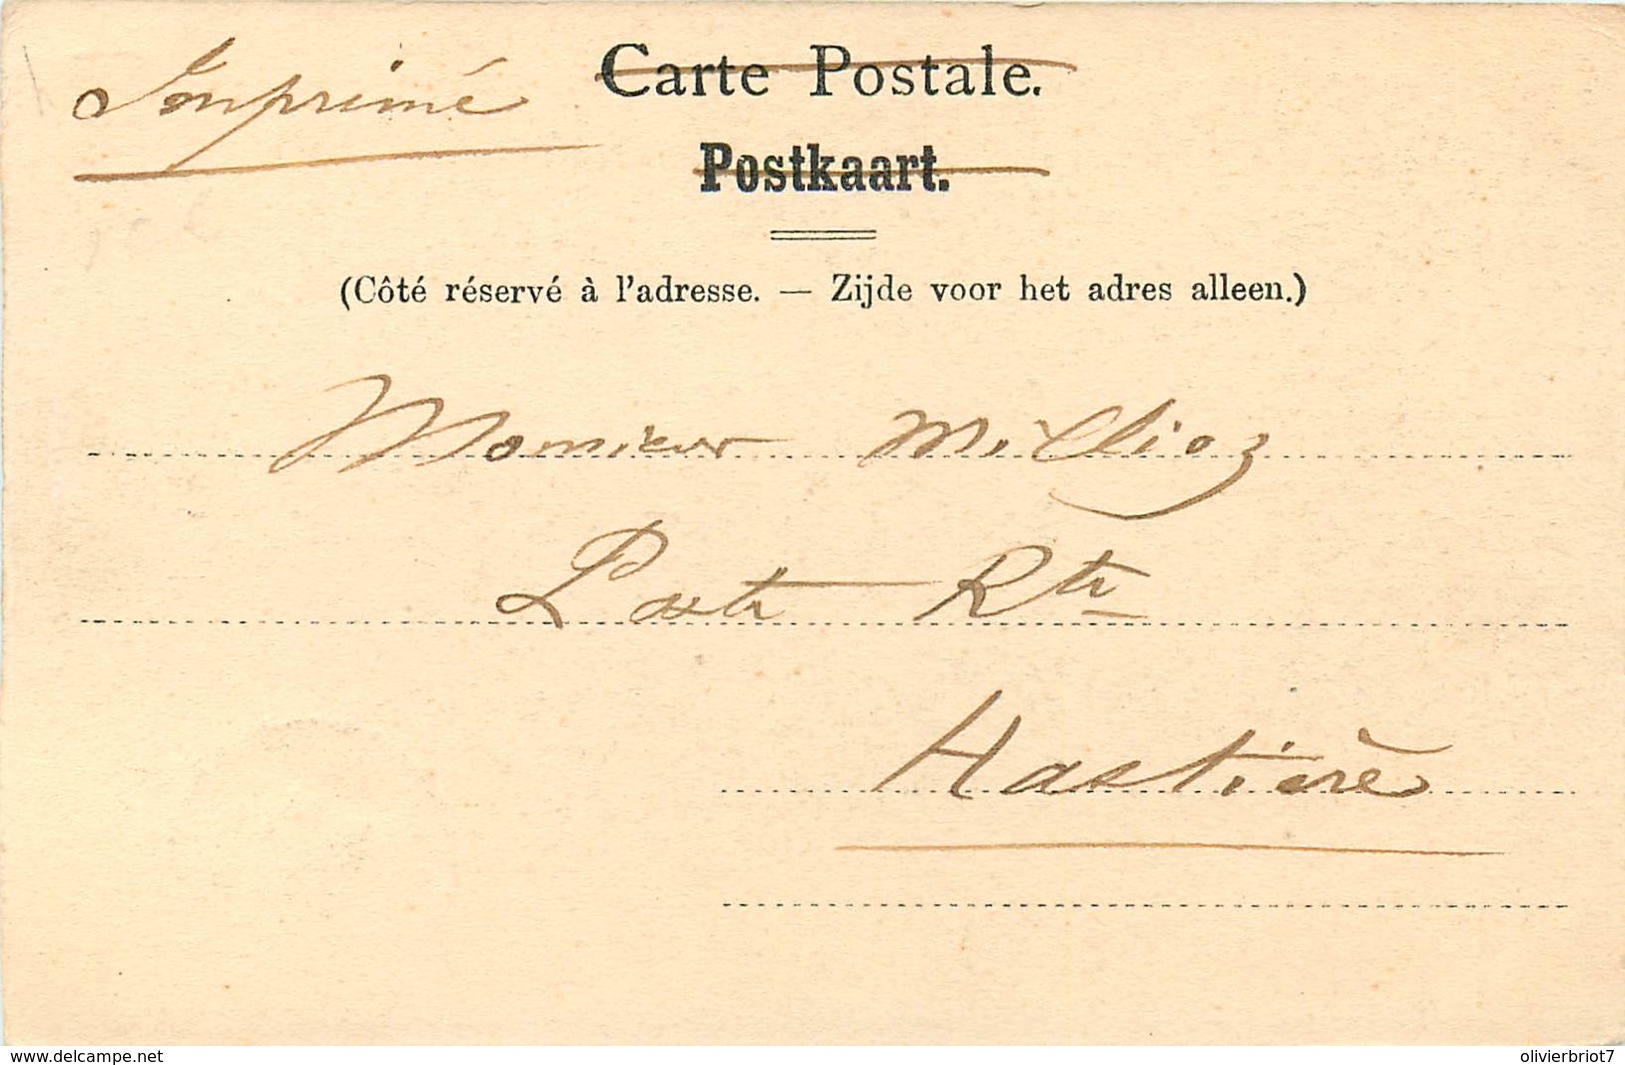 Imprimé
Carte Postale.
Postkaart.
(Côté réservé à l'adresse. — Zijde voor het adres alleen.)
Monsieur Millioz
Poste Rte
Hastière
www.delcampe.net
olivierbriot7